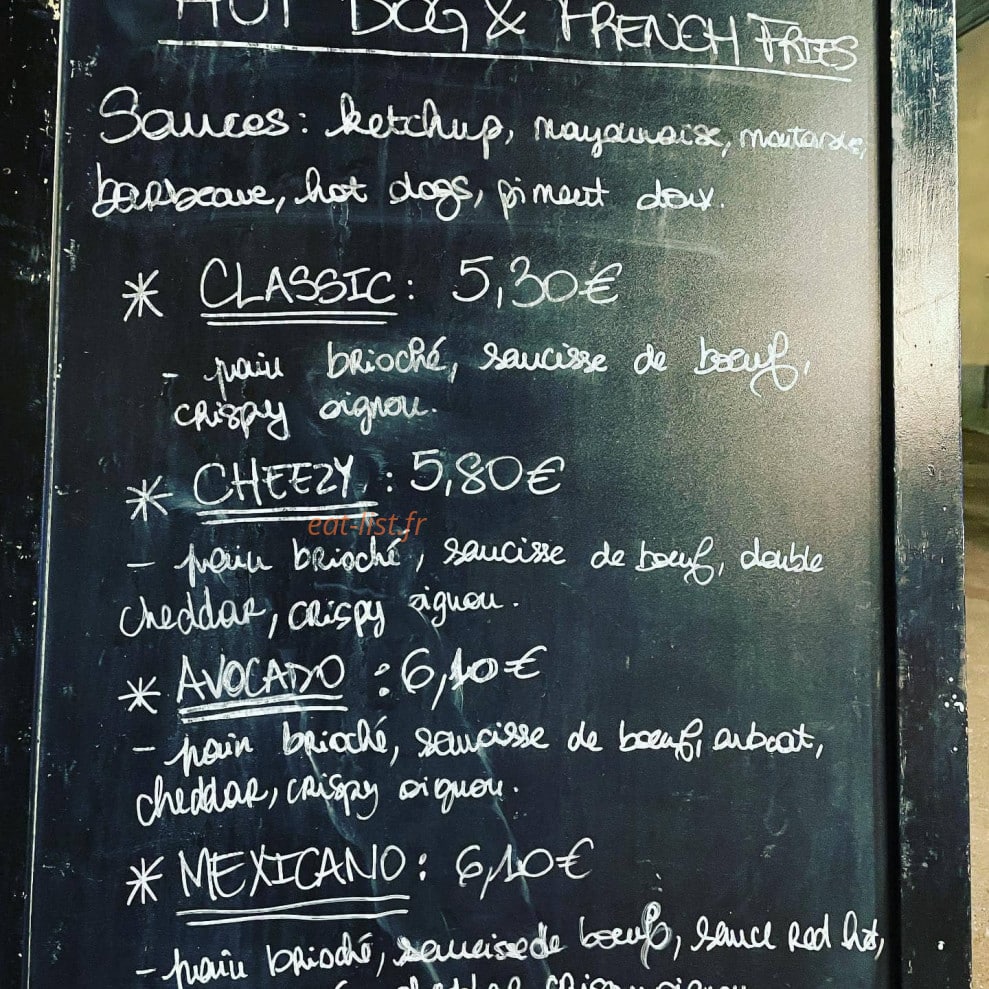 HOT DOG & FRENCH FRIES
Sauces: ketchup, mayonnaise, moutarde,
barbecue, hot dogs, piment doux.
* CLASSIC: 5,30€
- pain brioché, saucisse de bœuf,
crispy oignon.
* CHEEZY: 5,80€
eat-list.fr
- pain brioché, saucisse de bœuf, double
cheddar, crispy oignon.
* AVOCADO: 6,10€
- pain brioché, saucisse de bœuf,
cheddar, crispy oignon.
* MEXICANO: 6,10€
- pain brioché, saucisse de bœuf, sauce red hot,
cheddar, crispy oignon